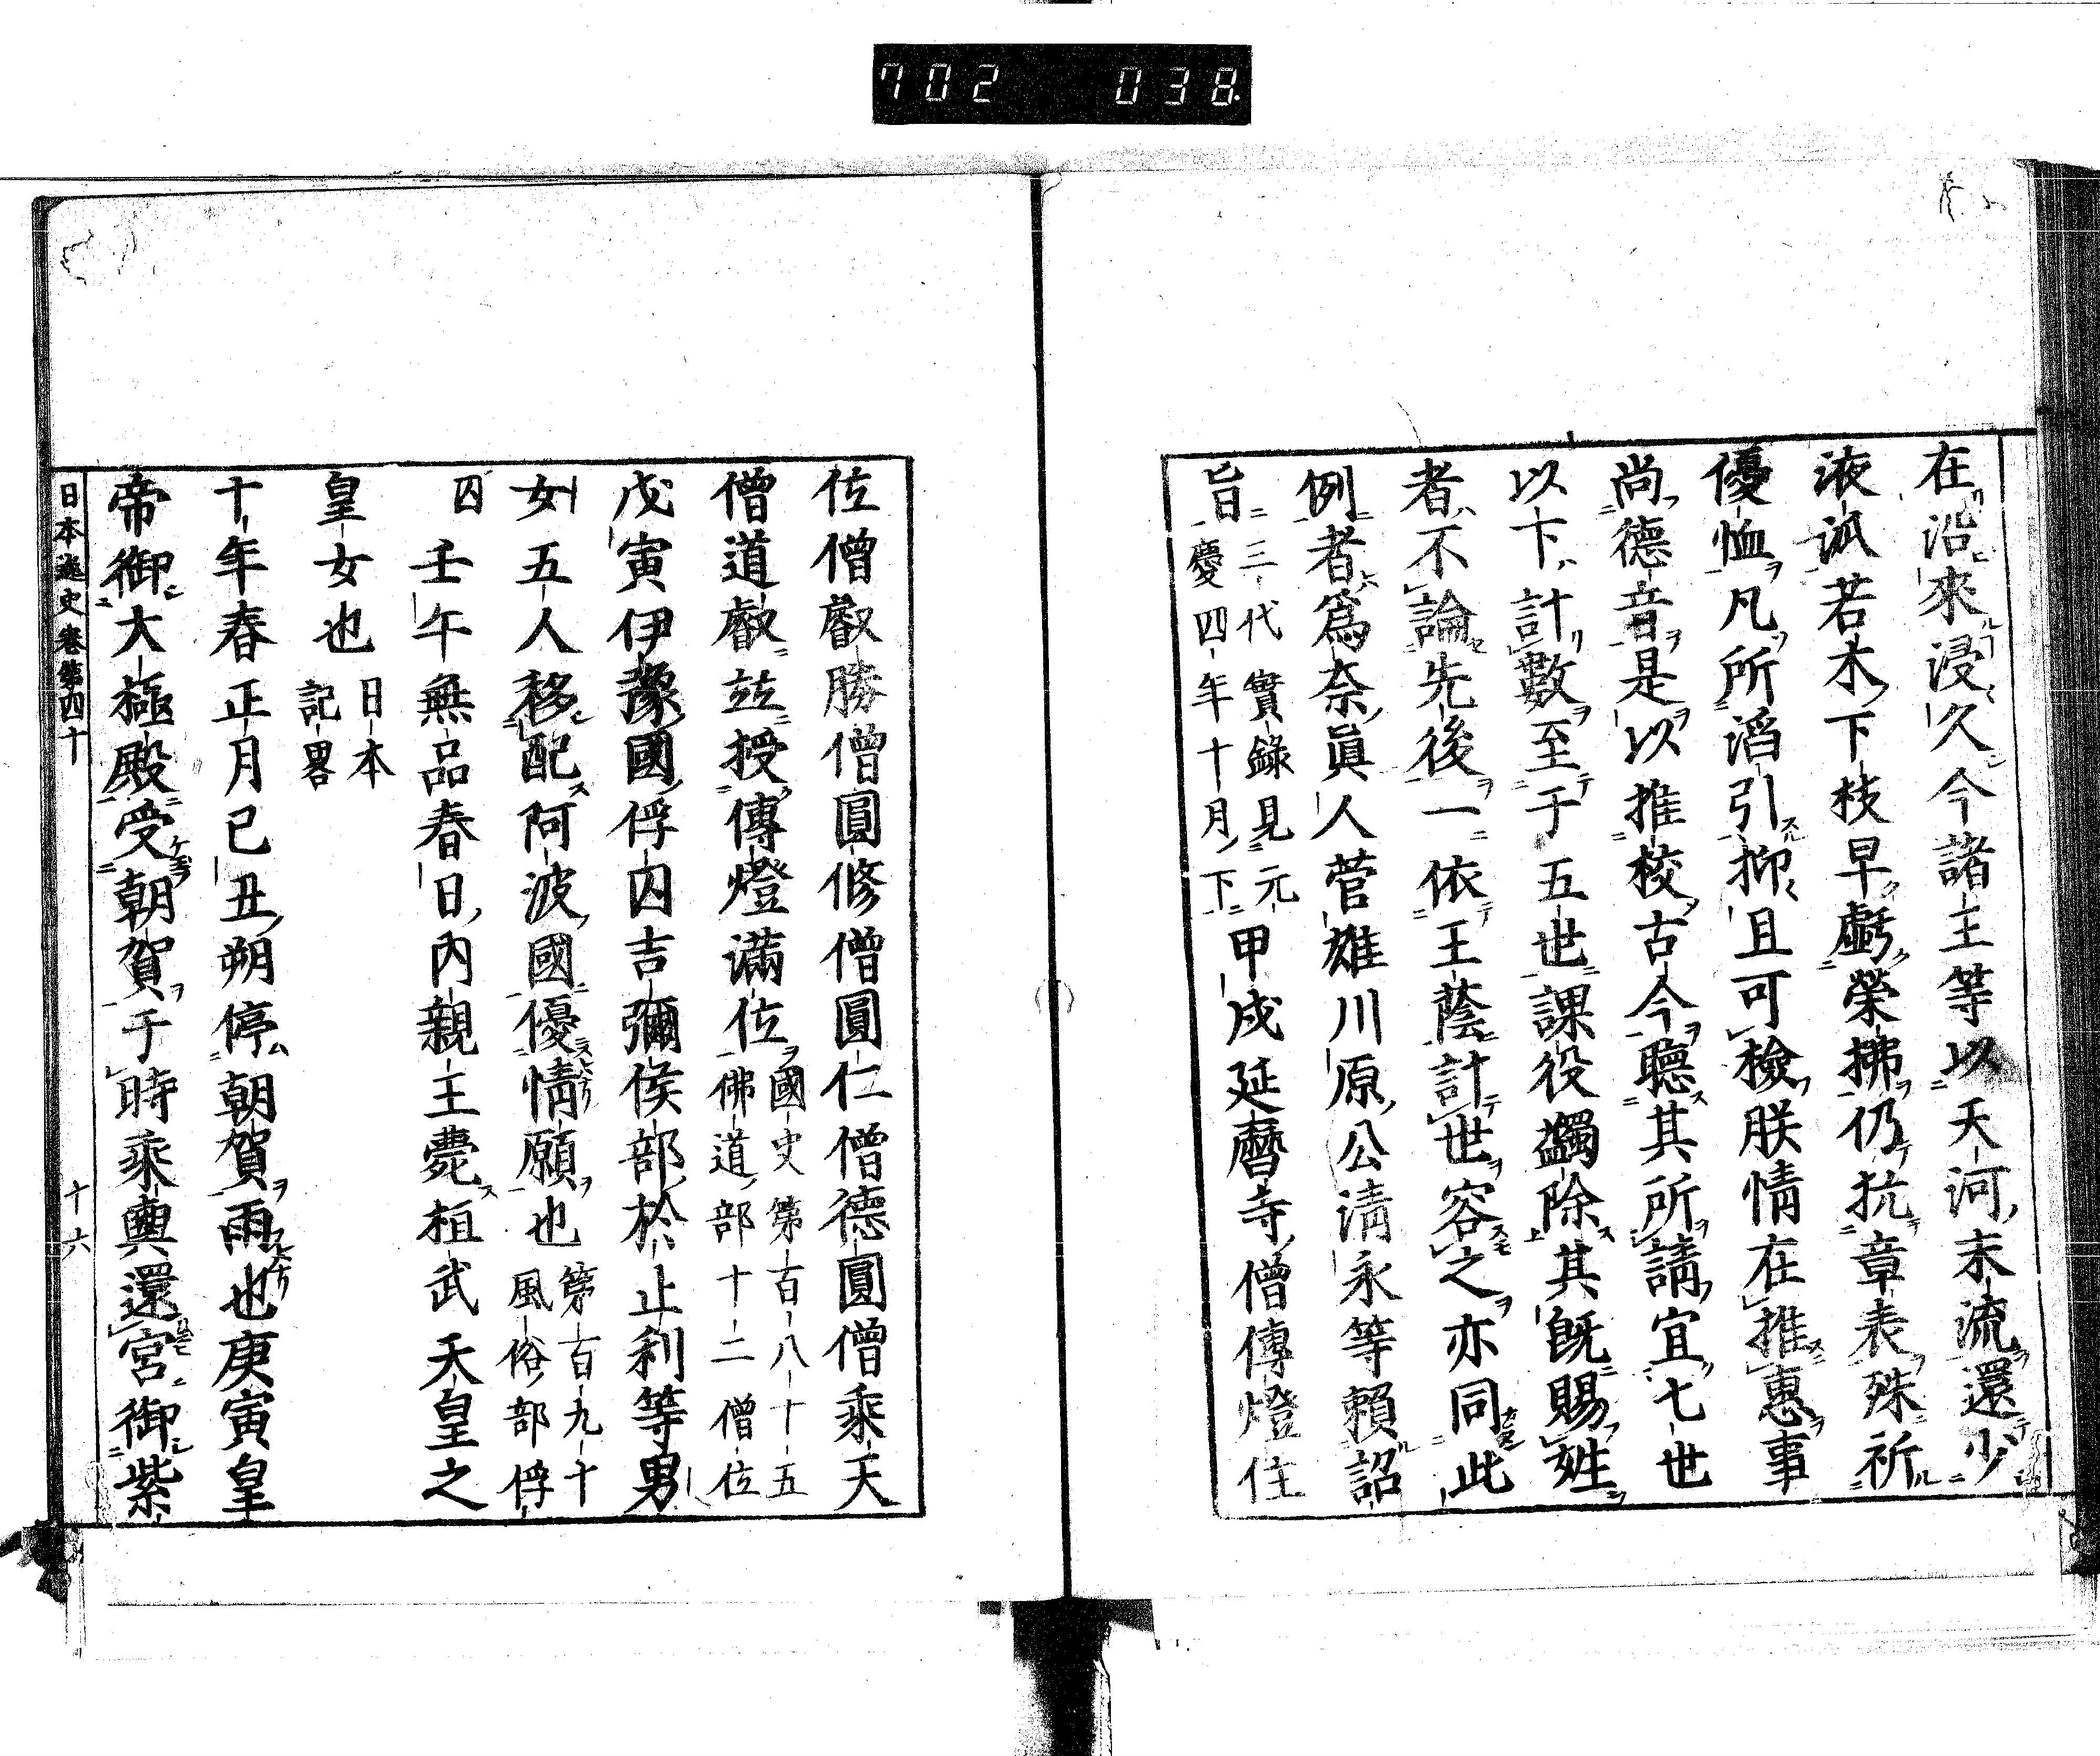 702 038
在沿來浸久今諸王等以天河末流還少
液派若木下枝早虧榮拂仍抗章表殊祈
優恤凡所滔引抑且可檢朕情在推惠事
尚德音是以推校古今聽其所請宜七世
以下計數至于五世課役蠲除其既賜姓
者不論先後一依王蔭計世容之亦同此
例者爲奈眞人菅雄川原公淸永等賴詔
旨
三代實錄見元
慶四年十月下
甲戌延曆寺僧傳燈住
位僧叡勝僧圓修僧圓仁僧德圓僧乘天
僧道叡竝授傳燈滿位
國史第百八十五
佛道部十二僧位
戊寅伊豫國俘囚吉彌侯部於止利等男
女五人移配阿波國優情願也
第百九十
風俗部俘
囚
壬午無品春日內親王薨桓武天皇之
皇女也
日本
記畧
十年春正月己丑朔停朝賀雨也庚寅皇
帝御大極殿受朝賀于時乘輿還宮御紫
日本逸史卷第四十 十六